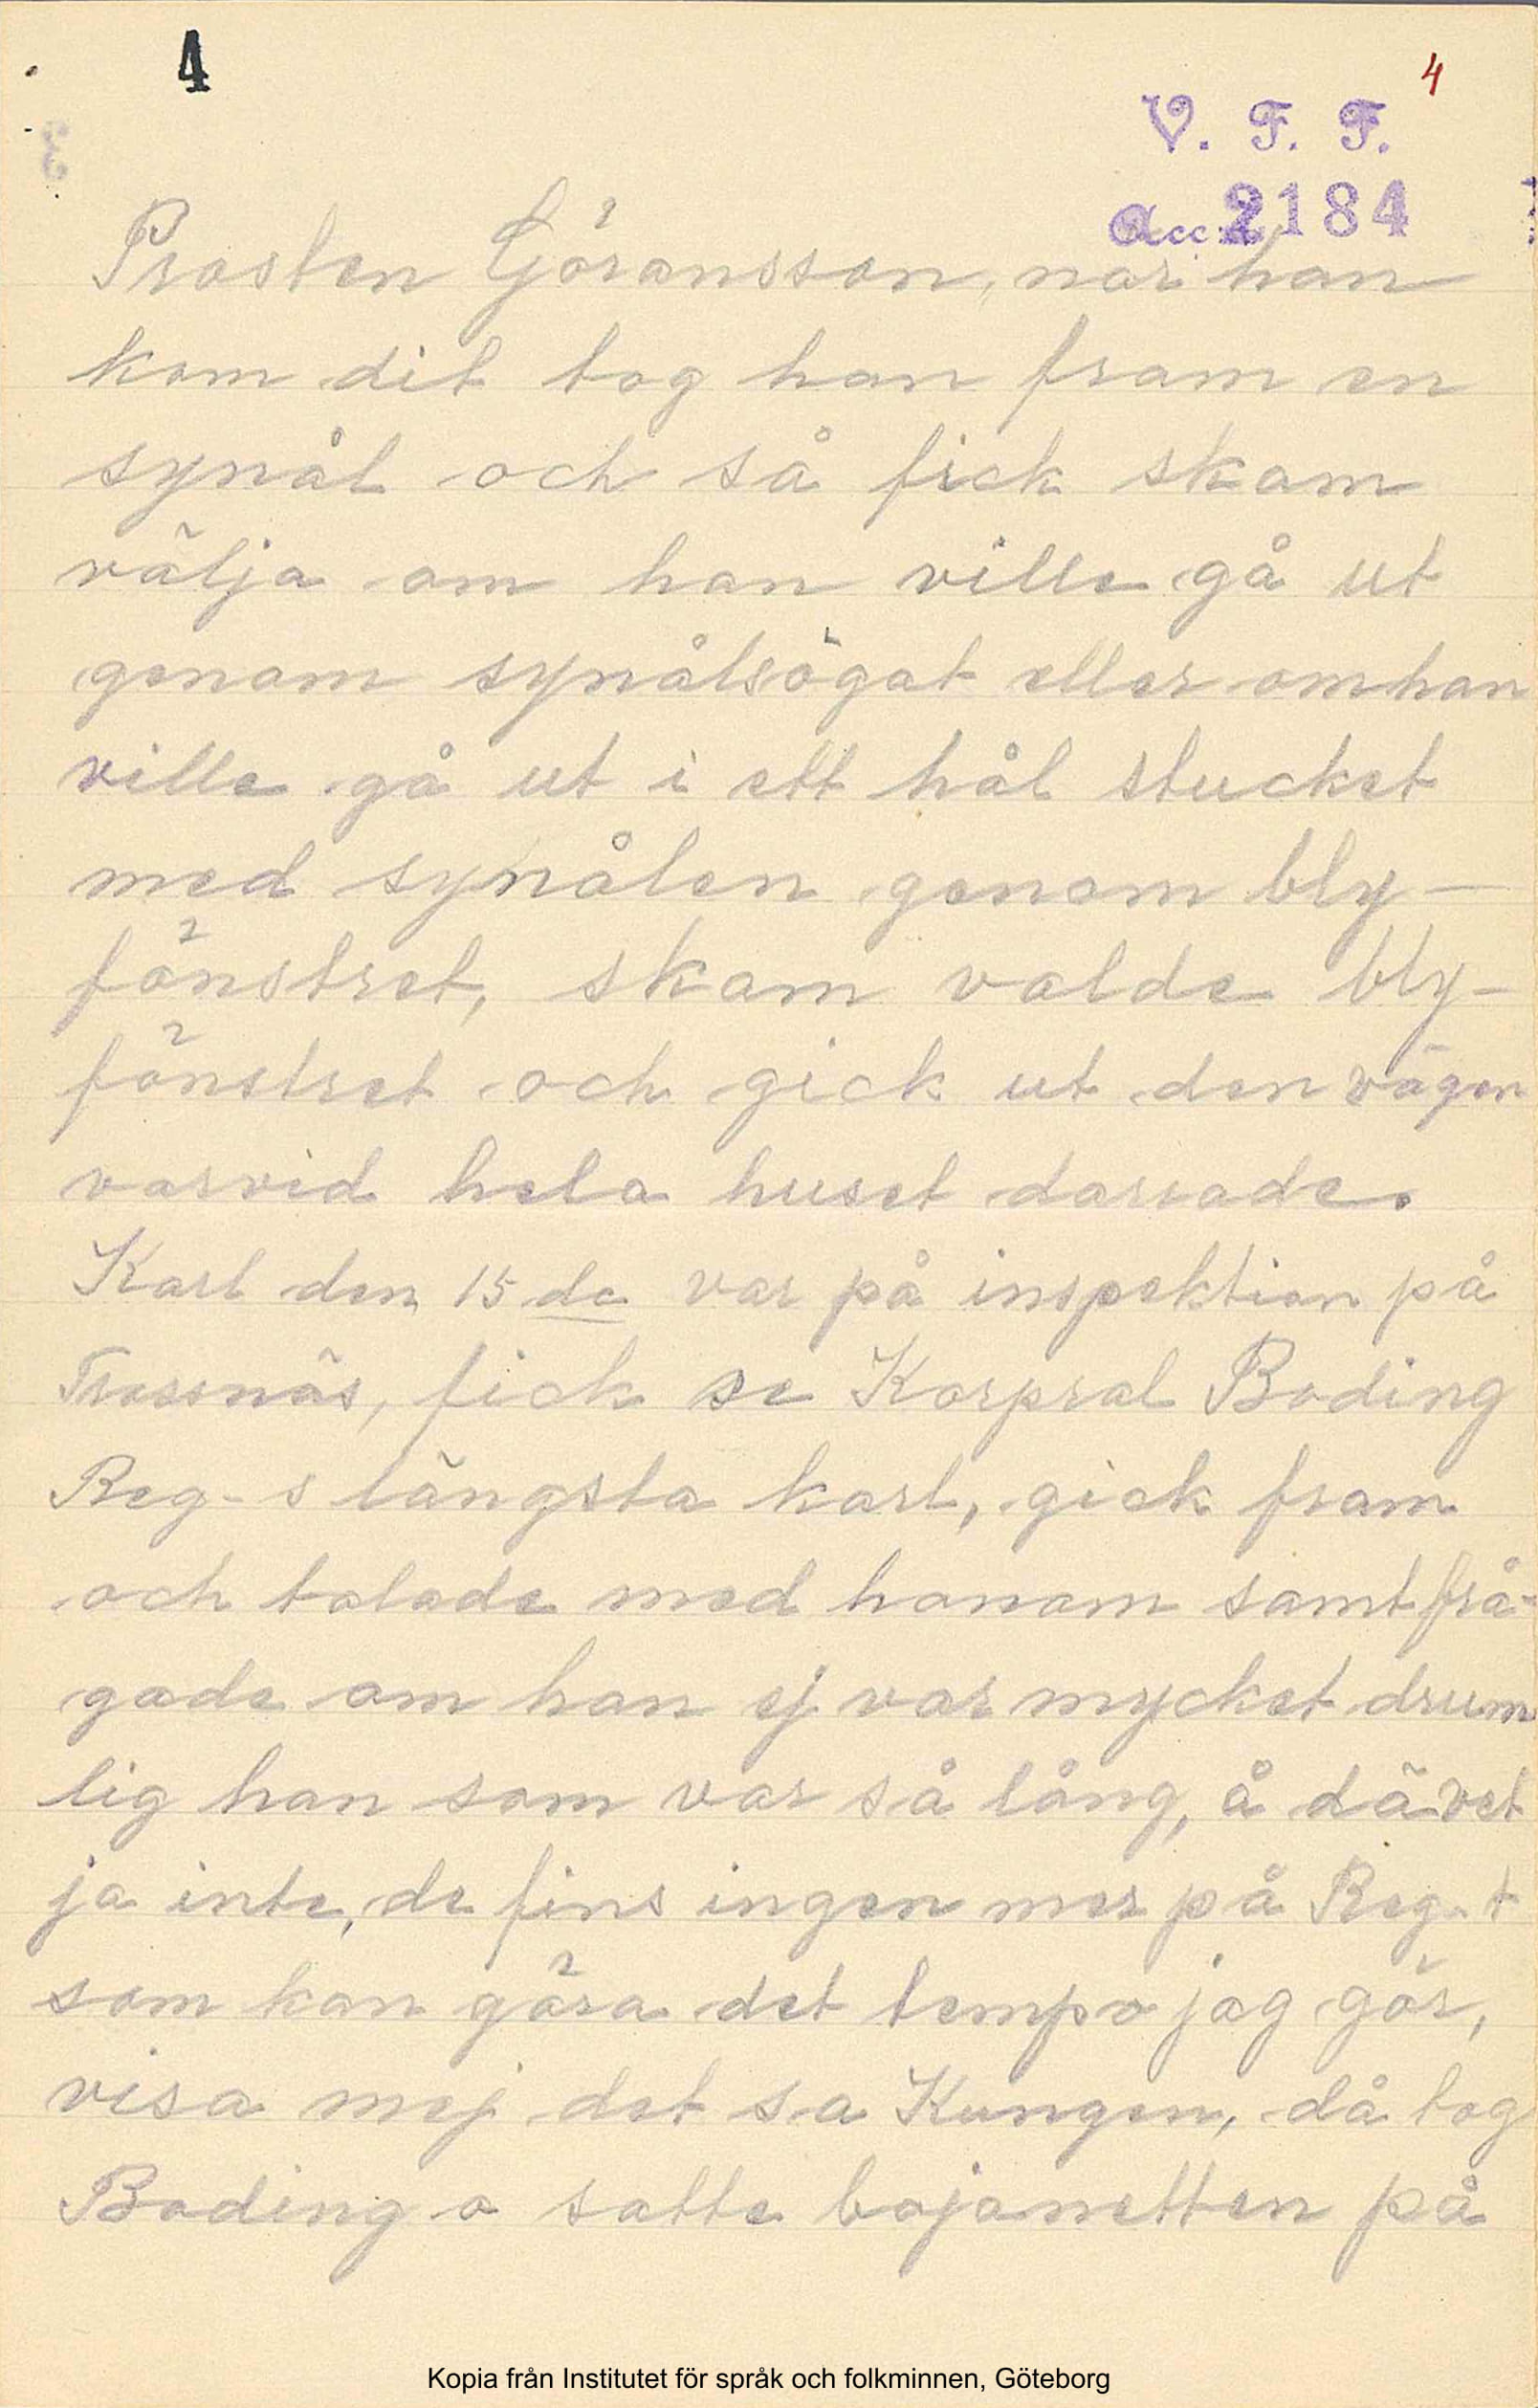 4
4
V. F. F.
Acc. 2184
Prosten Göransson, när han
kom dit tog han fram en
synål och så fick skam
välja om han ville gå ut
genom synålsögat eller om han
ville gå ut i ett hål stucket
med synålen genom bly-
fönstret, skam valde bly-
fönstret och gick ut den vägen
varvid hela huset darrade.
Karl den 15 de var på inspektion på
Trossnäs, fick se Korpral Boding
Reg-s längsta karl, gick fram
och talade med honom samt frå-
gade om han ej var mycket drum
lig han som var så lång, å dä vet
ja inte, de fins ingen mer på Reg-t
som kan göra det tempo jag gör,
visa mej det sa Kungen, då tog
Boding o satte bajonetten på
Kopia från Institutet för språk och folkminnen, Göteborg